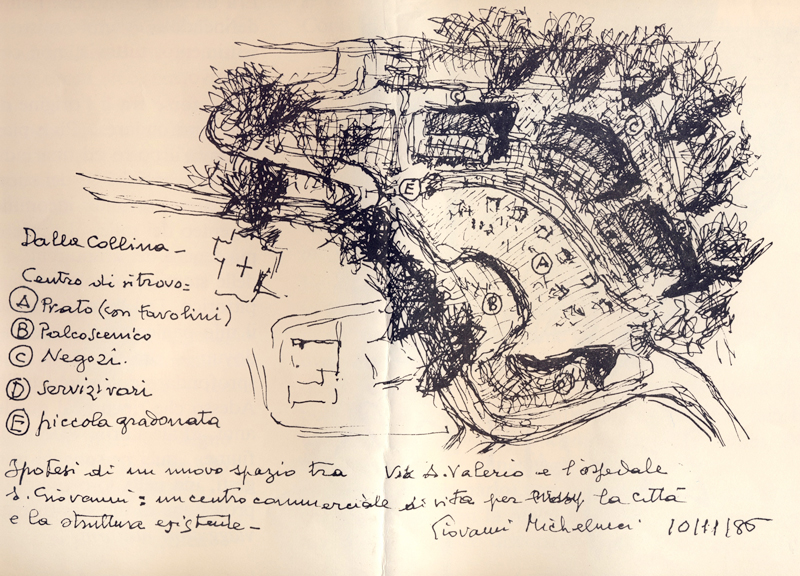 C
C
E
A
B
Dalla Collina -
Centro di ritrovo=
A Prato (con tavolini)
B Palcoscenico
C Negozi.
D Servizi vari
E piccola gradonata
Ipotesi di un nuovo spazio tra Via S. Valerio e l'ospedale
S. Giovanni: un centro commerciale di vita per la città
e la struttura esistente -
Giovanni Michelucci 10/11/86